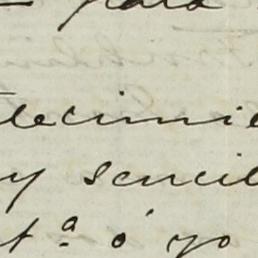 para
decimie
y sencil
tª o yo